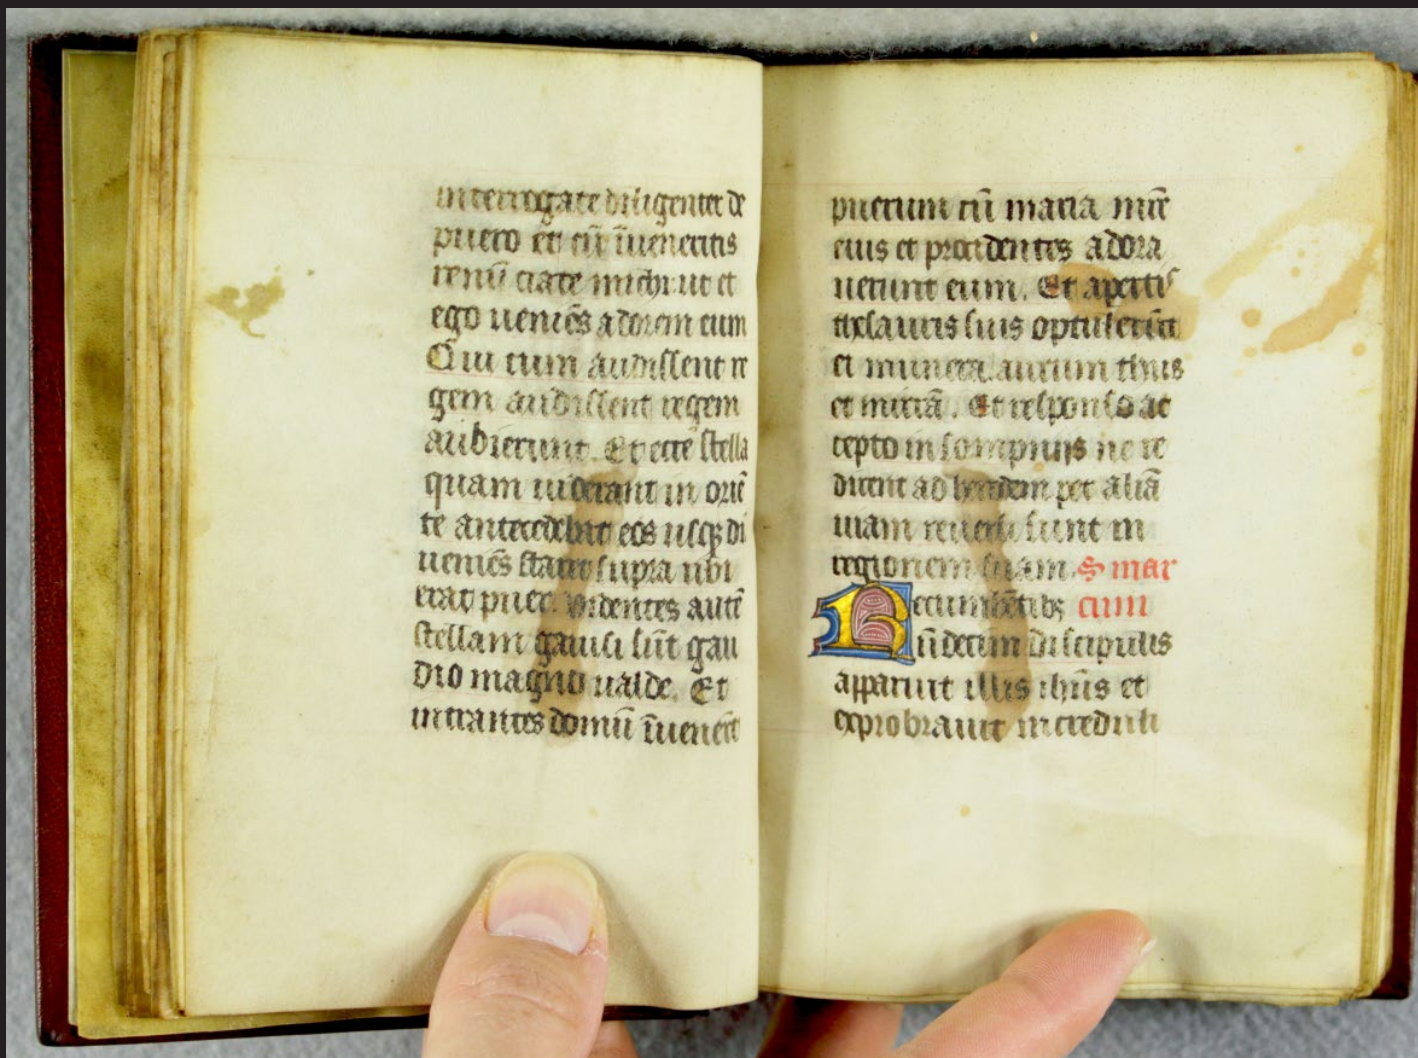 interrogate diligenter de
puero et cū īueneritis
renū ciate michi ut et
ego ueniēs adorem eum
Qui cum audissent re
gem audissent regem
aubierunt. Et ecce stella
quam uiderant in oriē
te antecedebat eos usq; dū
ueniēs staret supra ubi
erat puer. videntes autē
stellam gauisi sūt gau
dio magno ualde. Et
intrantes domū īuenerūt
puerum cū maria mr̄e
eius et procidentes adora
uerunt eum. Et apertis
thesauris suis optulerūt
ei munera. aurum thus
et mirrā. Et responso ac
cepto in sompnijs ne re
dirent ad herodem per aliā
uiam reuersi sunt in
regionem suam. S mar
Recumbētibꝫ cum
ūdecim discipulis
apparuit illis ihūs et
exprobrauit increduli